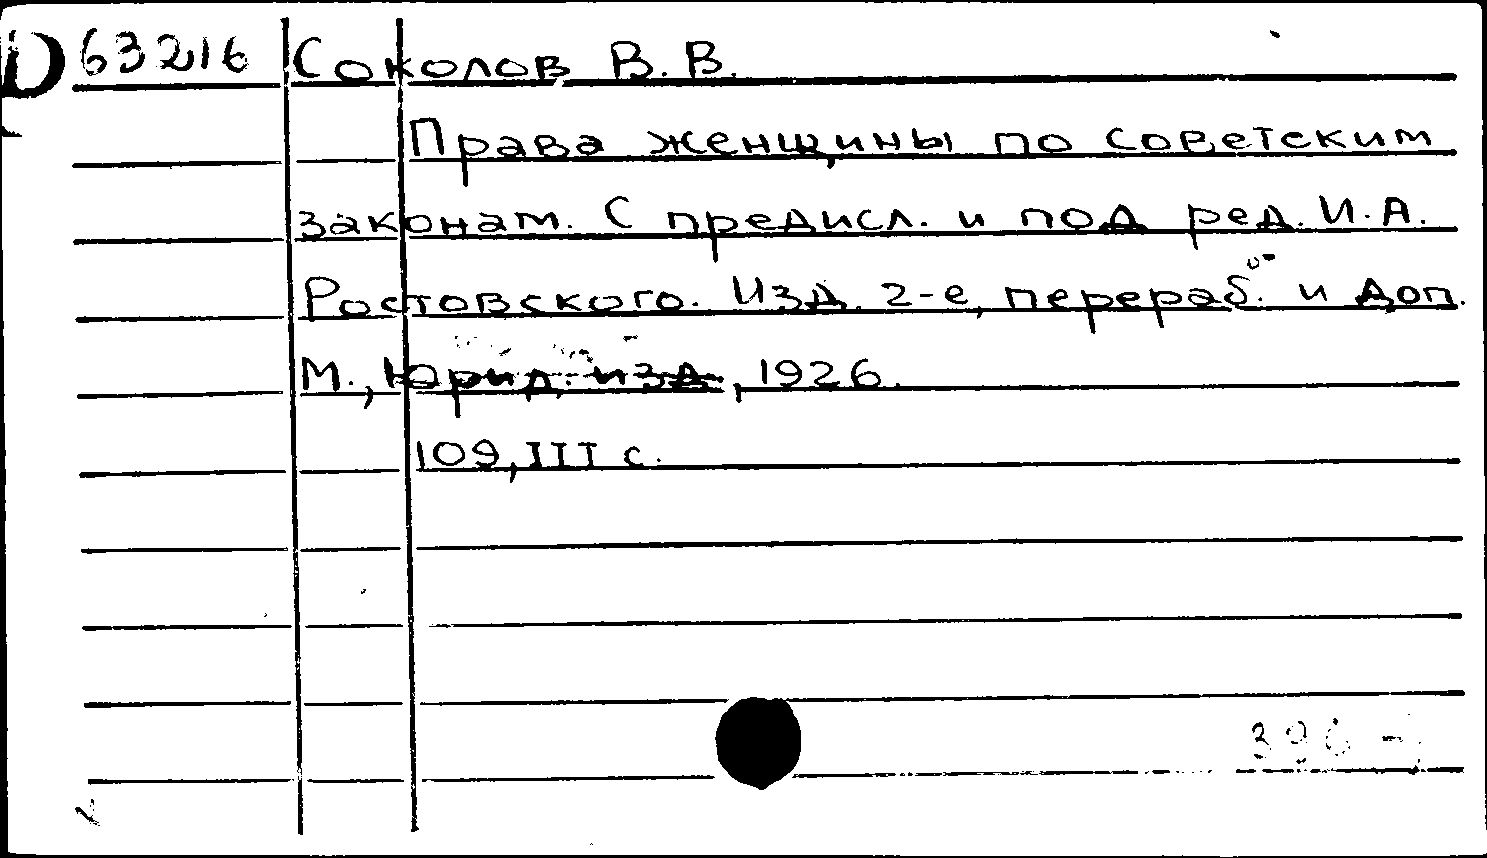 D 63216 Соколов В. В.
Права женщины по советским
законам. С предисл. и под ред. И. А.
Ростовского. Изд. 2-е, перераб. и доп.
М., Юрид. изд., 1926.
109, III с.